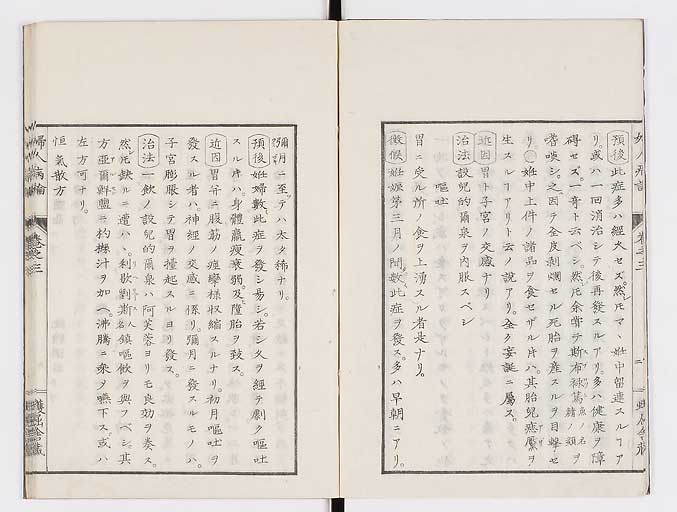 預後此症多ハ經久セズ。然𪜈マヽ妊中留連スルヿア
リ。或ハ一回消治シテ後再發スルアリ。多ハ健康ヲ障
碍セズ。一奇ト云ベシ。然𪜈余嘗テ斯布
嗜啖シ。之ニ因テ全皮剥爛セル死胎ヲ産スルヲ目撃セ
リ。〇妊中上件ノ諸品ヲ食セザル片ハ。其胎兒痣靨ヲ
生スルヿアリト云ノ說アリ。全ク妄誕ニ屬ス。
近因胃ト子宮ノ交感ナリ
治法設兒的爾泉ヲ内服スベシ
嘔吐
胃ニ受ル所ノ食ヲ上湧スル者是ナリ。
徵候妊娠第三月ノ間數此症ヲ發ス。多ハ早朝ニアリ。
彌月ニ至テハ太タ稀ナリ。
預後妊婦數此症ヲ發シ易シ。若シ久ヲ經テ劇ク嘔吐
スル片ハ。身體羸瘦衰弱。及墮胎ヲ致ス。
近因胃并ニ腹筋ノ痙攣樣収縮スルナリ。初月嘔吐ヲ
發スル者ハ。神經ノ交感ニ係リ。彌月ニ發スルモノハ。
子宮膨脹シテ胃ヲ擡起スルヨリ發ス。
治法一飲ノ設兒的爾泉ハ阿芙蓉ヨリモ良効ヲ奏ス。
然𪜈缺ルニ遭ハヽ。利歇劉斯人名鎮嘔飲ヲ與フベシ。其
方亞爾鮮鹽ニ枸櫞汁ヲ加ヘ。沸騰ニ乘ヲ嚥下ス。或ハ
左方可ナリ。
恒氣散方
婦人病論
卷之三